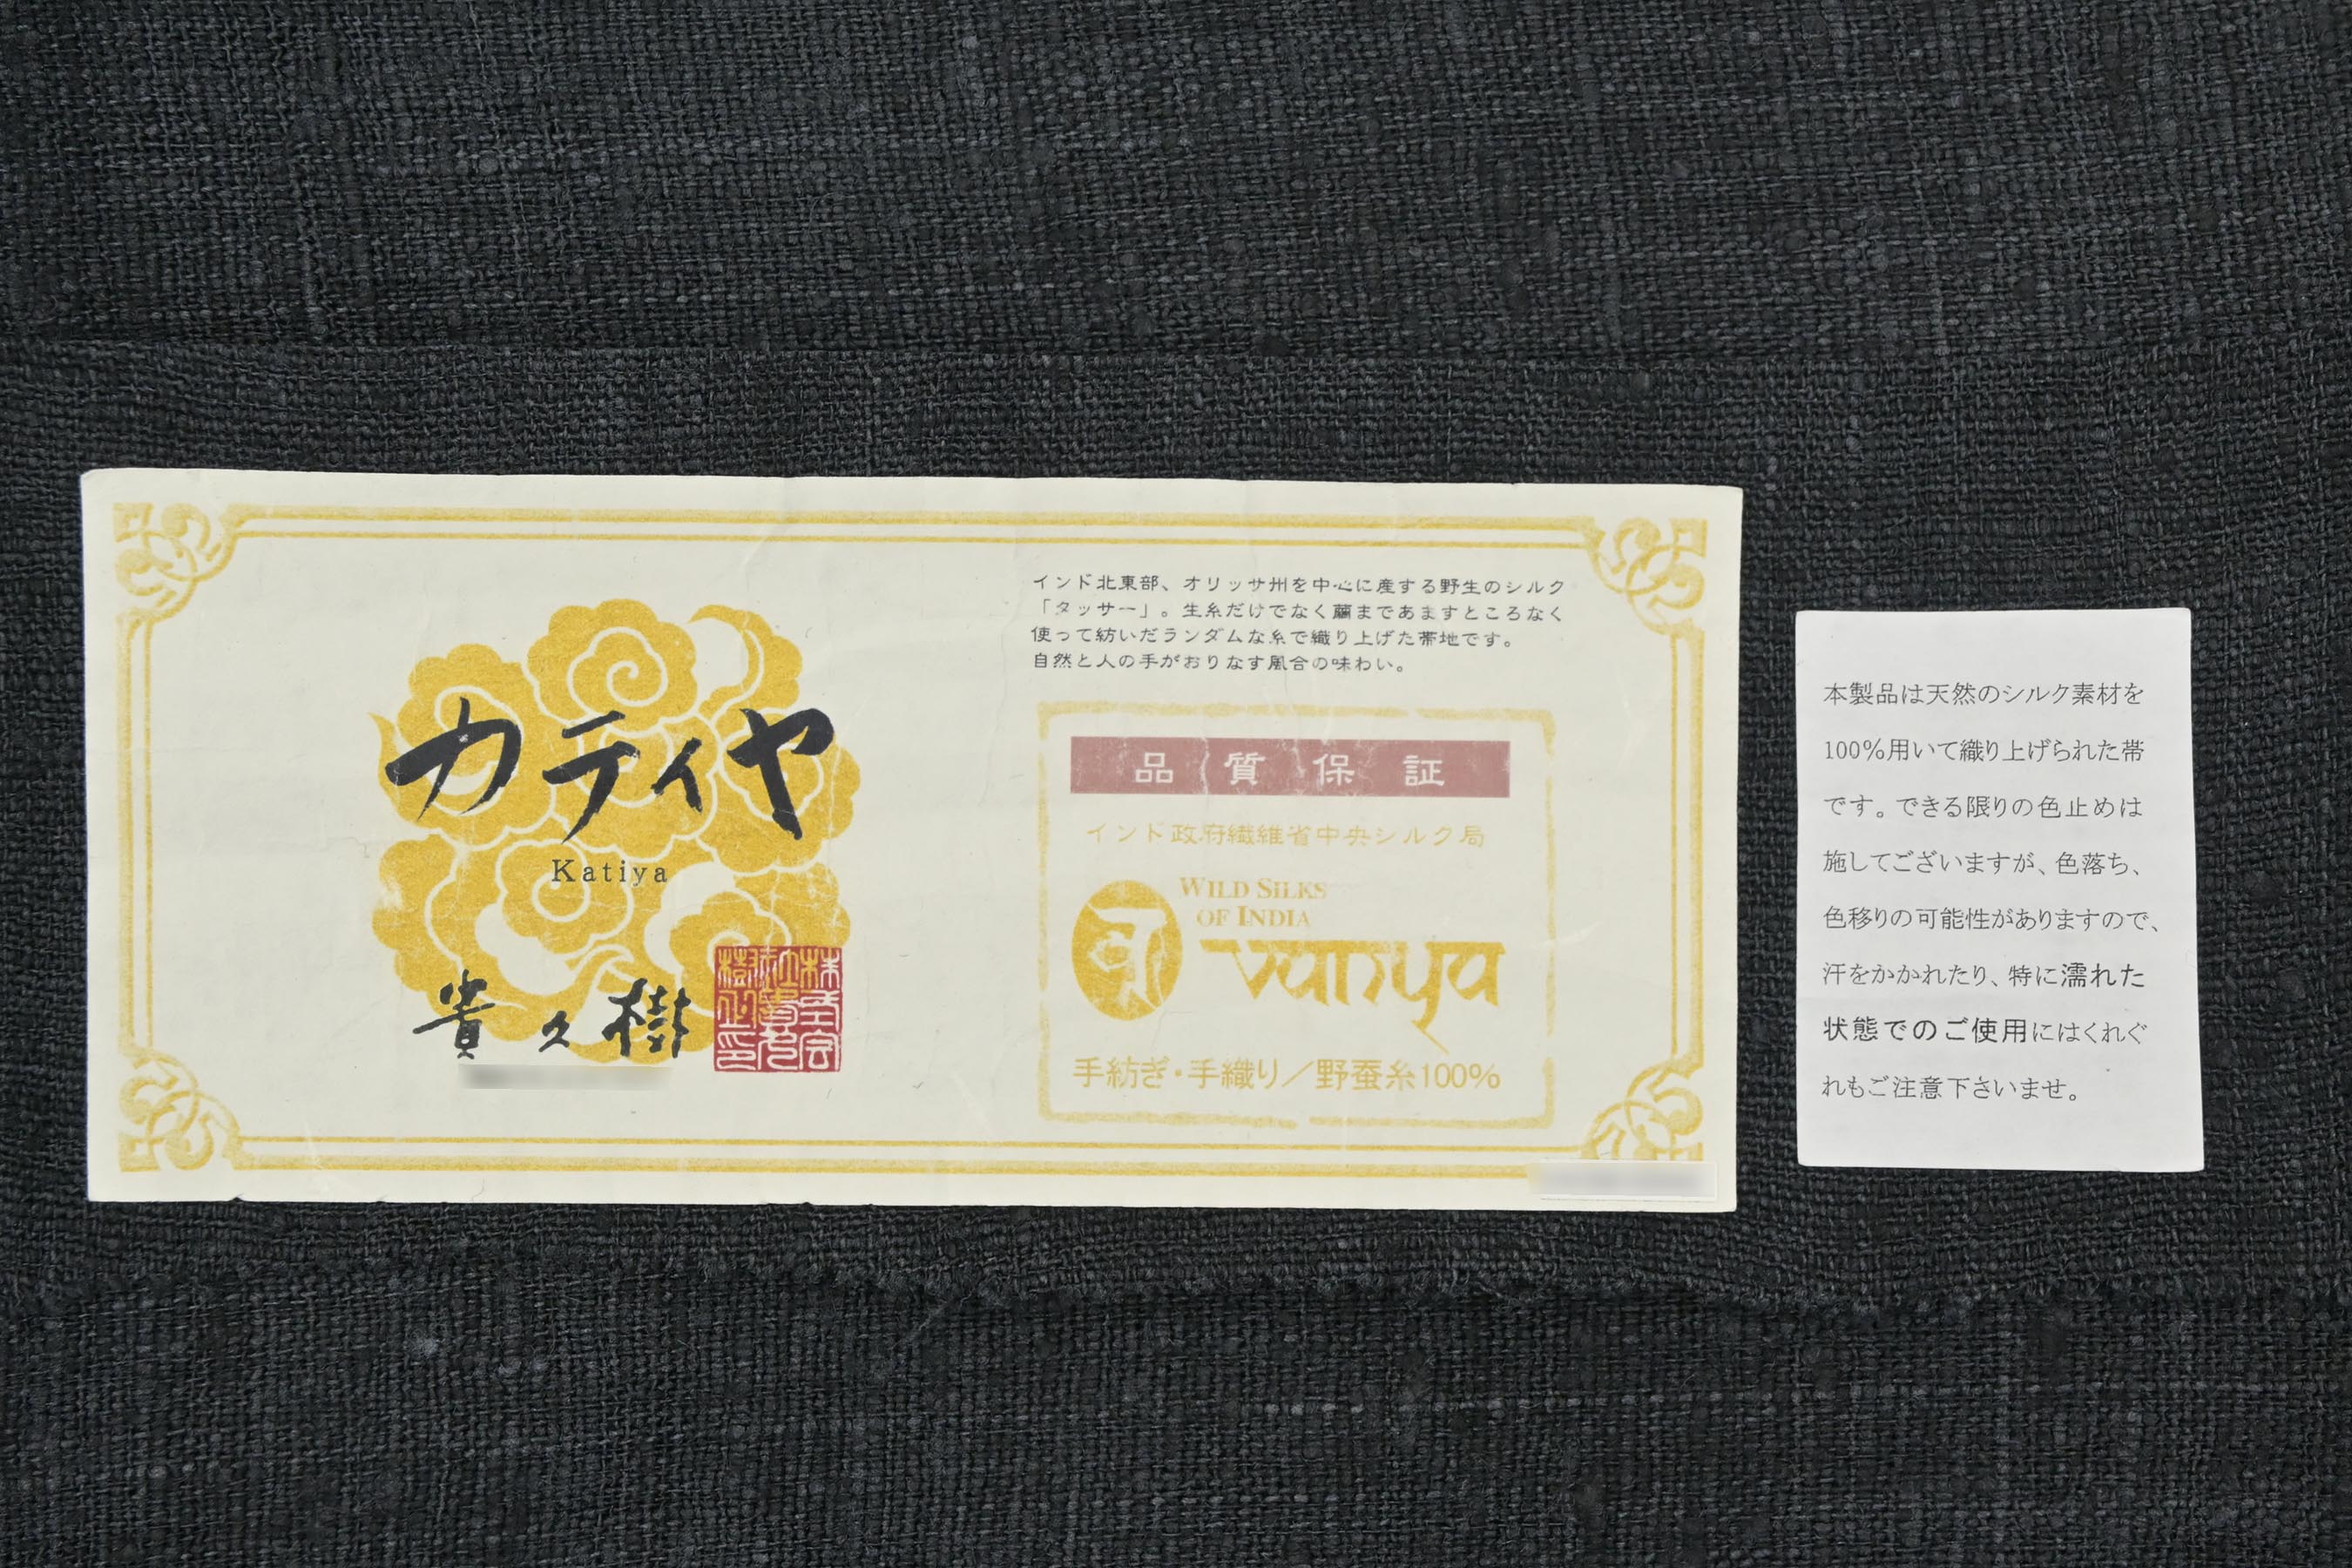 カティヤ
Katiya
貴久樹
インド北東部、オリッサ州を中心に産する野生のシルク
「タッサー」。生糸だけでなく繭まであますところなく
使って紡いだランダムな糸で織り上げた帯地です。
自然と人の手がおりなす風合の味わい。
品質保証
インド政府繊維省中央シルク局
WILD SILKS
OF INDIA
vanya
手紡ぎ・手織り／野蚕糸100%
本製品は天然のシルク素材を
100%用いて織り上げられた帯
です。できる限りの色止めは
施してございますが、色落ち、
色移りの可能性がありますので、
汗をかかれたり、特に濡れた
状態でのご使用にはくれぐ
れもご注意下さいませ。